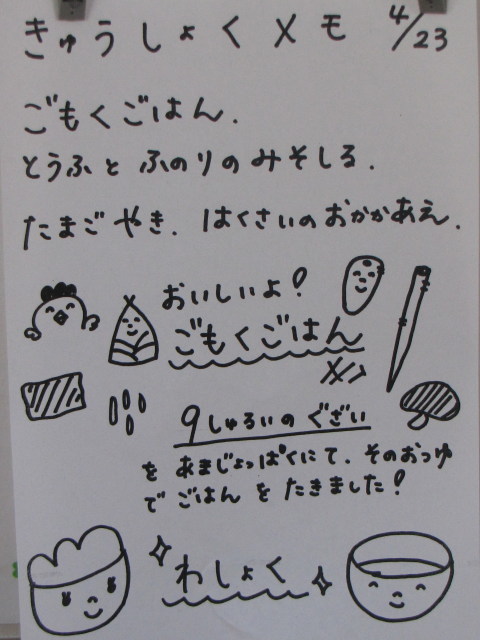 きゅうしょくメモ 4/23
ごもくごはん.
とうふと ふのりのみそしる.
たまごやき. はくさいのおかかあえ.
おいしいよ!
ごもくごはん
9しゅるいの ぐざい
を あまじょっぱくにて. そのおつゆ
で ごはん を たきました!
わしょく